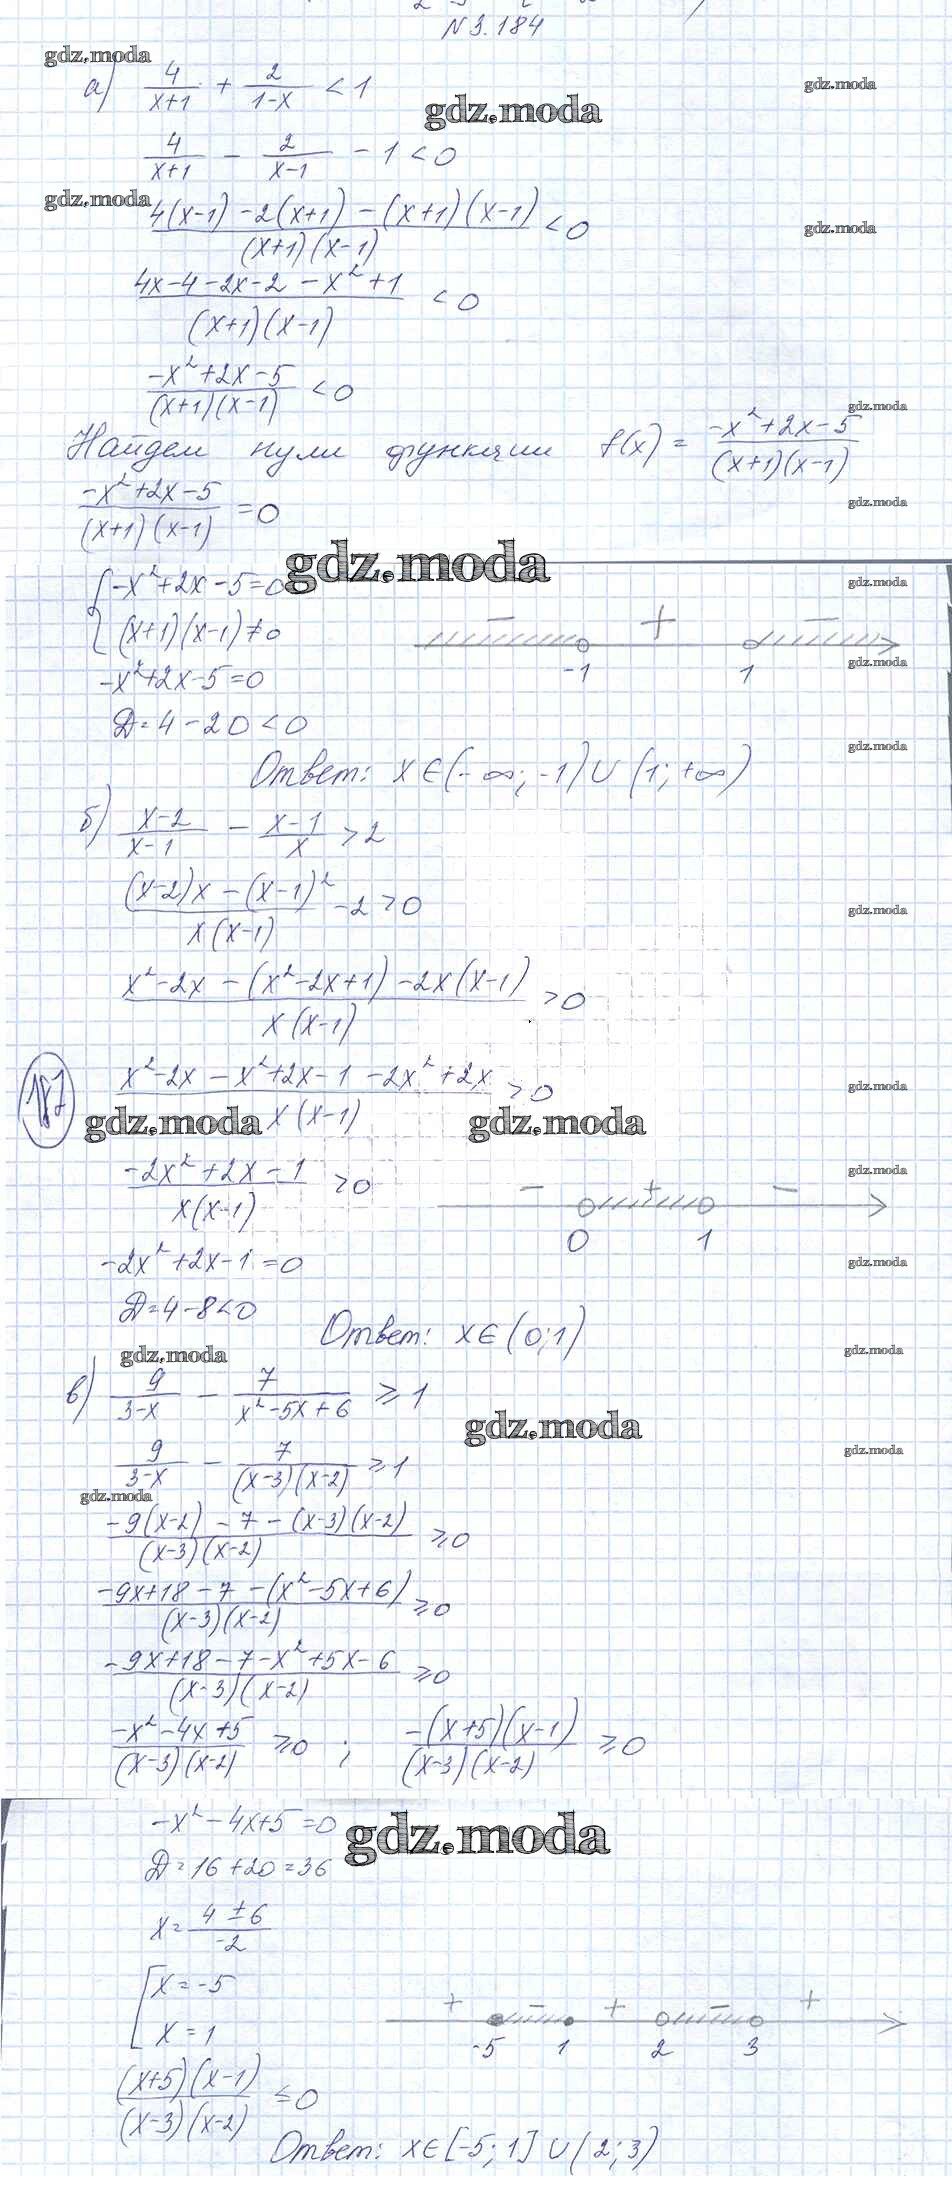 N 3.184
gdz.moda
а) 4/(x+1) + 2/(1-x) < 1
gdz.moda
gdz.moda
4/(x+1) - 2/(x-1) - 1 < 0
gdz.moda
(4(x-1) - 2(x+1) - (x+1)(x-1))/((x+1)(x-1)) < 0
gdz.moda
(4x-4-2x-2-x²+1)/((x+1)(x-1)) < 0
(-x²+2x-5)/((x+1)(x-1)) < 0
gdz.moda
Найдем нули функции f(x) = (-x²+2x-5)/((x+1)(x-1))
(-x²+2x-5)/((x+1)(x-1)) = 0
gdz.moda
gdz.moda
{ -x²+2x-5=0
gdz.moda
(x+1)(x-1)≠0
- + -
-1 1
gdz.moda
-x²+2x-5=0
D=4-20<0
gdz.moda
Ответ: x∈(-∞; -1)∪(1; +∞)
б) (x-2)/(x-1) - (x-1)/x > 2
((x-2)x - (x-1)²)/(x(x-1)) - 2 > 0
gdz.moda
(x²-2x - (x²-2x+1) - 2x(x-1))/(x(x-1)) > 0
187
(x²-2x - x²+2x-1 - 2x²+2x)/(x(x-1)) > 0
gdz.moda
gdz.moda
gdz.moda
(-2x²+2x-1)/(x(x-1)) > 0
gdz.moda
- + -
0 1
-2x²+2x-1=0
gdz.moda
D=4-8<0
Ответ: x∈(0;1)
gdz.moda
gdz.moda
в) 9/(3-x) - 7/(x²-5x+6) ⩾ 1
gdz.moda
9/(3-x) - 7/((x-3)(x-2)) ⩾ 1
gdz.moda
gdz.moda
(-9(x-2) - 7 - (x-3)(x-2))/((x-3)(x-2)) ⩾ 0
(-9x+18-7-(x²-5x+6))/((x-3)(x-2)) ⩾ 0
(-9x+18-7-x²+5x-6)/((x-3)(x-2)) ⩾ 0
(-x²-4x+5)/((x-3)(x-2)) ⩾ 0 ; (-(x+5)(x-1))/((x-3)(x-2)) ⩾ 0
-x²-4x+5=0
gdz.moda
D=16+20=36
x=(4±6)/(-2)
[ x=-5
x=1
+ - + - +
-5 1 2 3
((x+5)(x-1))/((x-3)(x-2)) ⩽ 0
Ответ: x∈[-5; 1]∪(2; 3)